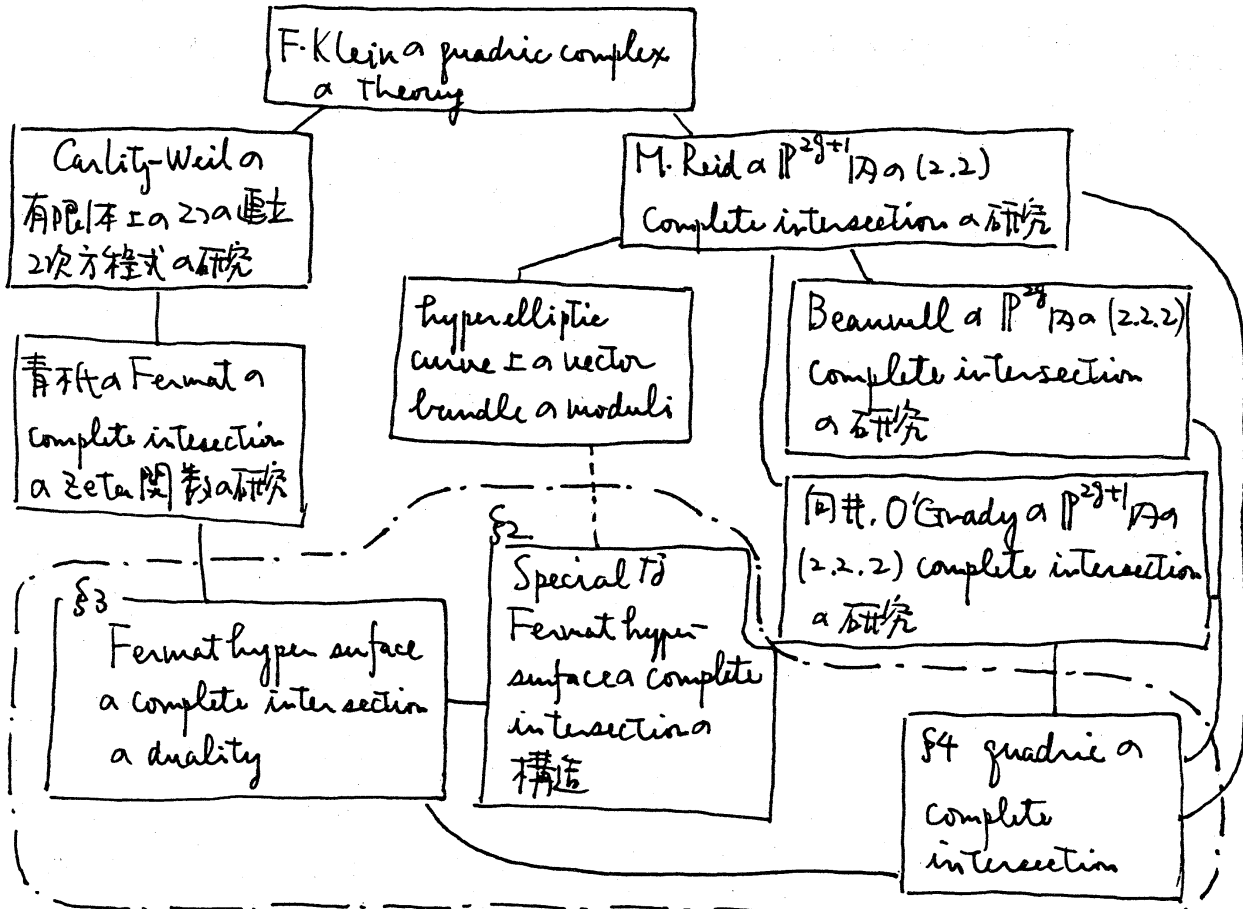 F. Klein の quadric complex
の Theory
Carlitz-Weil の
有限体上の2つの連立
2次方程式の研究
M. Reid の P^{2g+1} 内の (2.2)
complete intersection の研究
hyperelliptic
curve 上の vector
bundle の moduli
Beauvill の P^{2g} 内の (2.2.2)
complete intersection
の研究
青木氏の Fermat の
complete intesection
の Zeta 関数の研究
向井, O'Grady の P^{2g+1} 内の
(2.2.2) complete intersection
の研究
§3
Fermat hyper surface
の complete intersection
の duality
§2
Special な
Fermat hyper-
surface の complete
intersection の
構造
§4 quadric の
complete
intersection